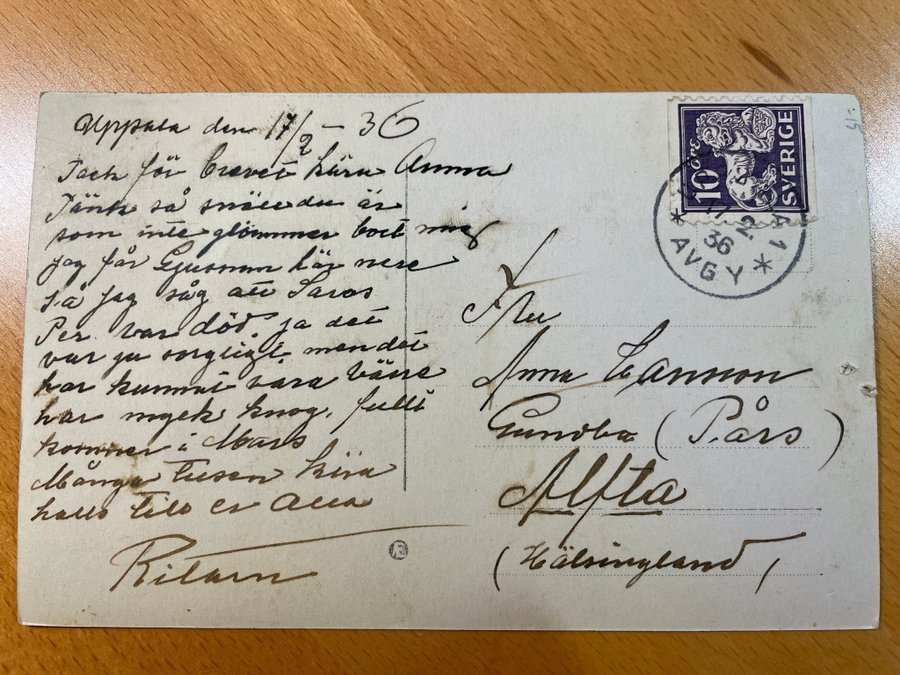 Uppsala den 17/2 - 36
Tack för brevet kära Anna
Tänk så snäll du är
som inte glömmer bort mig
jag får här nere
så jag såg att Laros
Per var död, ja det
var ju sorgligt, men det
har kunnat vara värre
har myck knog, fullt
kommer i Mars
Många tusen kära
hälls till er Alla
10 ÖRE
SVERIGE
A 1
17 2
36
AVG Y
Fru
Anna
Gundbo (Pårs)
Alfta
(Hälsingland)